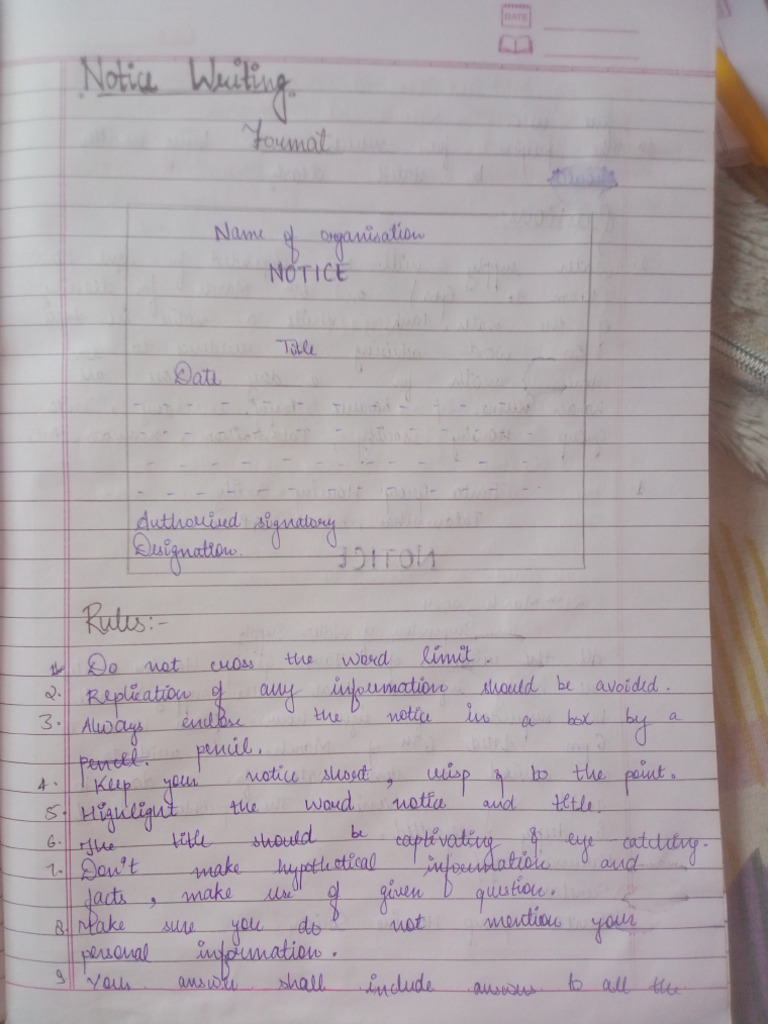 DATE
Notice Writing
Format
Name of organisation
NOTICE
Title
Date
Authorised signatory
Designation.
NOTICE
Rules:-
1. Do not cross the word limit.
2. Replication of any information should be avoided.
3. Always enclose the notice in a box by a
pencil. pencil.
4. Keep your notice short, crisp & to the point.
5. Highlight the word notice and title.
6. The title should be captivating & eye catching.
7. Don't make hypothetical information and
facts, make use of given question.
8. Make sure you do not mention your
personal information.
9 Your answer shall include answers to all the